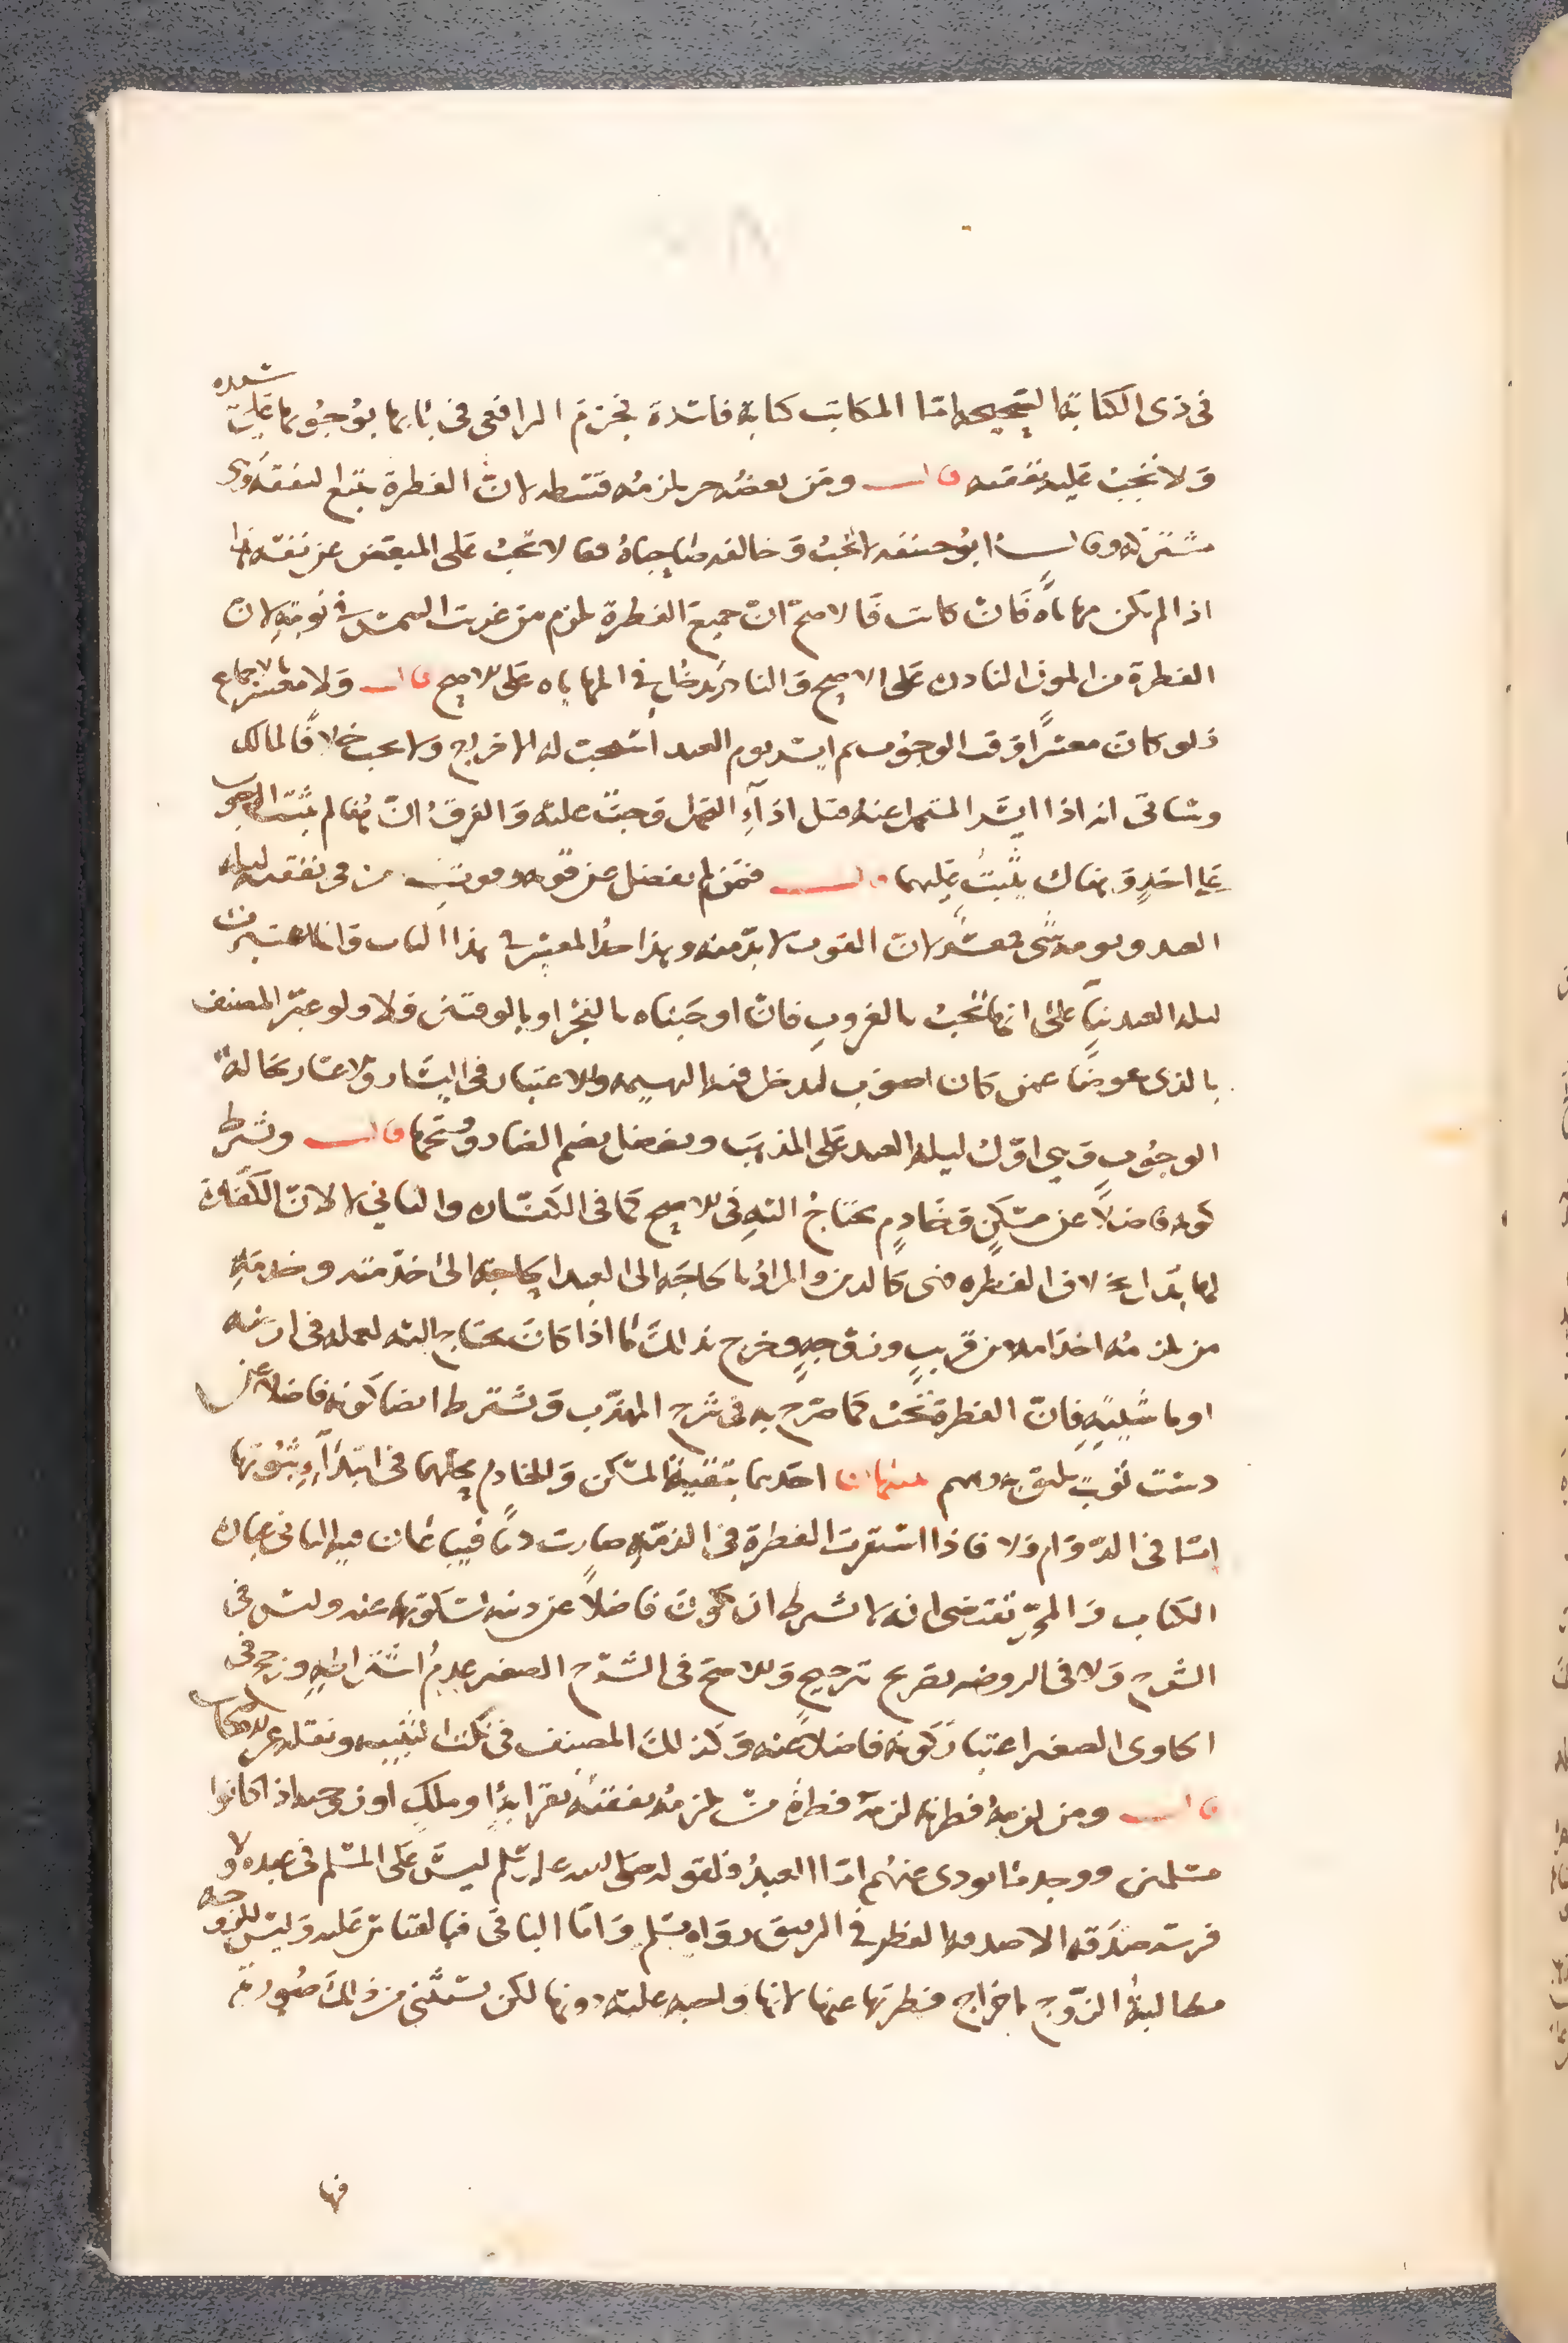 في ذي الكتابة الصحيحة اما المكاتب كتابة فاسدة فجزم الرافعي في بابها بوجوبها على سيده
ولا تجب عليه نفقته قال ومن بعضه حر يلزمه قسطه لان الفطرة تتبع النفقة وهي
مشتركة وقال ابو حنيفة لا تجب وخالفه صاحباه فقالا تجب على المبعض عن نفسه هذا
اذا لم تكن مهاياة فان كانت فالاصح ان جميع الفطرة يلزم من غربت الشمس في نوبته لان
الفطرة من المون النادرة على الاصح والنادر يدخل في المهاياه على الاصح قال ولا معسر بالاجماع
فلو كان معسرا وقت الوجوب ثم ايسر يوم العيد استحبت له الاخراج ولا يجب خلافا لمالك
وسياتي انه اذا ايسر المتحمل عنه قبل اداء المتحمل وجبت عليه والفرق ان هنا لم يثبت الوجوب
على احد وهناك يثبت عليهما قال فمن لم يفضل عن قوته وقوت من في نفقته ليلة
العيد ويومه شي فمعسر لان القوت لا بد منه وهذا حد المعسر في هذا الباب وانما اعتبرت
ليلة العيد بناء على انها تجب بالغروب فان اوجبناه بالفجر او بالوقتين فلا ولو عبر المصنف
بالذي عوضا عمن كان اصوب لتدخل فيه البهيمة والاعتبار في اليسار والاعسار بحالة
الوجوب وهي اول ليلة العيد على المذهب ويفضل بضم الضاد وفتحها قال ويشترط
كونه فاضلا عن مسكن وخادم يحتاج اليه في الاصح كما في الكفارة والثاني لا لان الكفارة
لها بدل بخلاف الفطرة فهي كالدين والمراد بالحاجة الى العبد الحاجة الى خدمته وخدمة
من يلزمه اخدامه من قريب وزوجة وخرج بذلك ما اذا كان يحتاج اليه لعمله في ارضه
او ماشيته فان الفطرة تجب كما صرح به في شرح المهذب ويشترط ايضا كونه فاضلا عن
دست ثوب يليق به وبهم تنبيهان احدهما تبقية المسكن والخادم محلهما في ابتداء ثبوتها
اما في الدوام فلا فاذا استقرت الفطرة في الذمة صارت دينا فيباعان فيه الثاني عبارة
الكتاب والمحرر تقتضي انه لا يشترط ان يكون فاضلا عن دينه لسكوتهما عنه وليس في
الشرح ولا في الروضة تصريح بترجيح والاصح في الشرح الصغير عدم اشتراطه ورجح في
الحاوي الصغير اعتبار كونه فاضلا عنه وكذلك المصنف في نكت التنبيه ونقله عن الاصحاب
قال ومن لزمه فطرته لزمه فطرة من يلزمه نفقته بقرابة او ملك او زوجية اذا كانوا
مسلمين ووجد ما يودي عنهم اما العبد فلقوله صلى الله عليه وسلم ليس على المسلم في عبده ولا
فرسه صدقة الا صدقة الفطر في الرقيق رواه مسلم واما الباقي فبالقياس عليه وليس للزوجة
مطالبة الزوج باخراج فطرتها عنها لانها واجبة عليه دونها لكن يستثنى من ذلك صورة
فيها